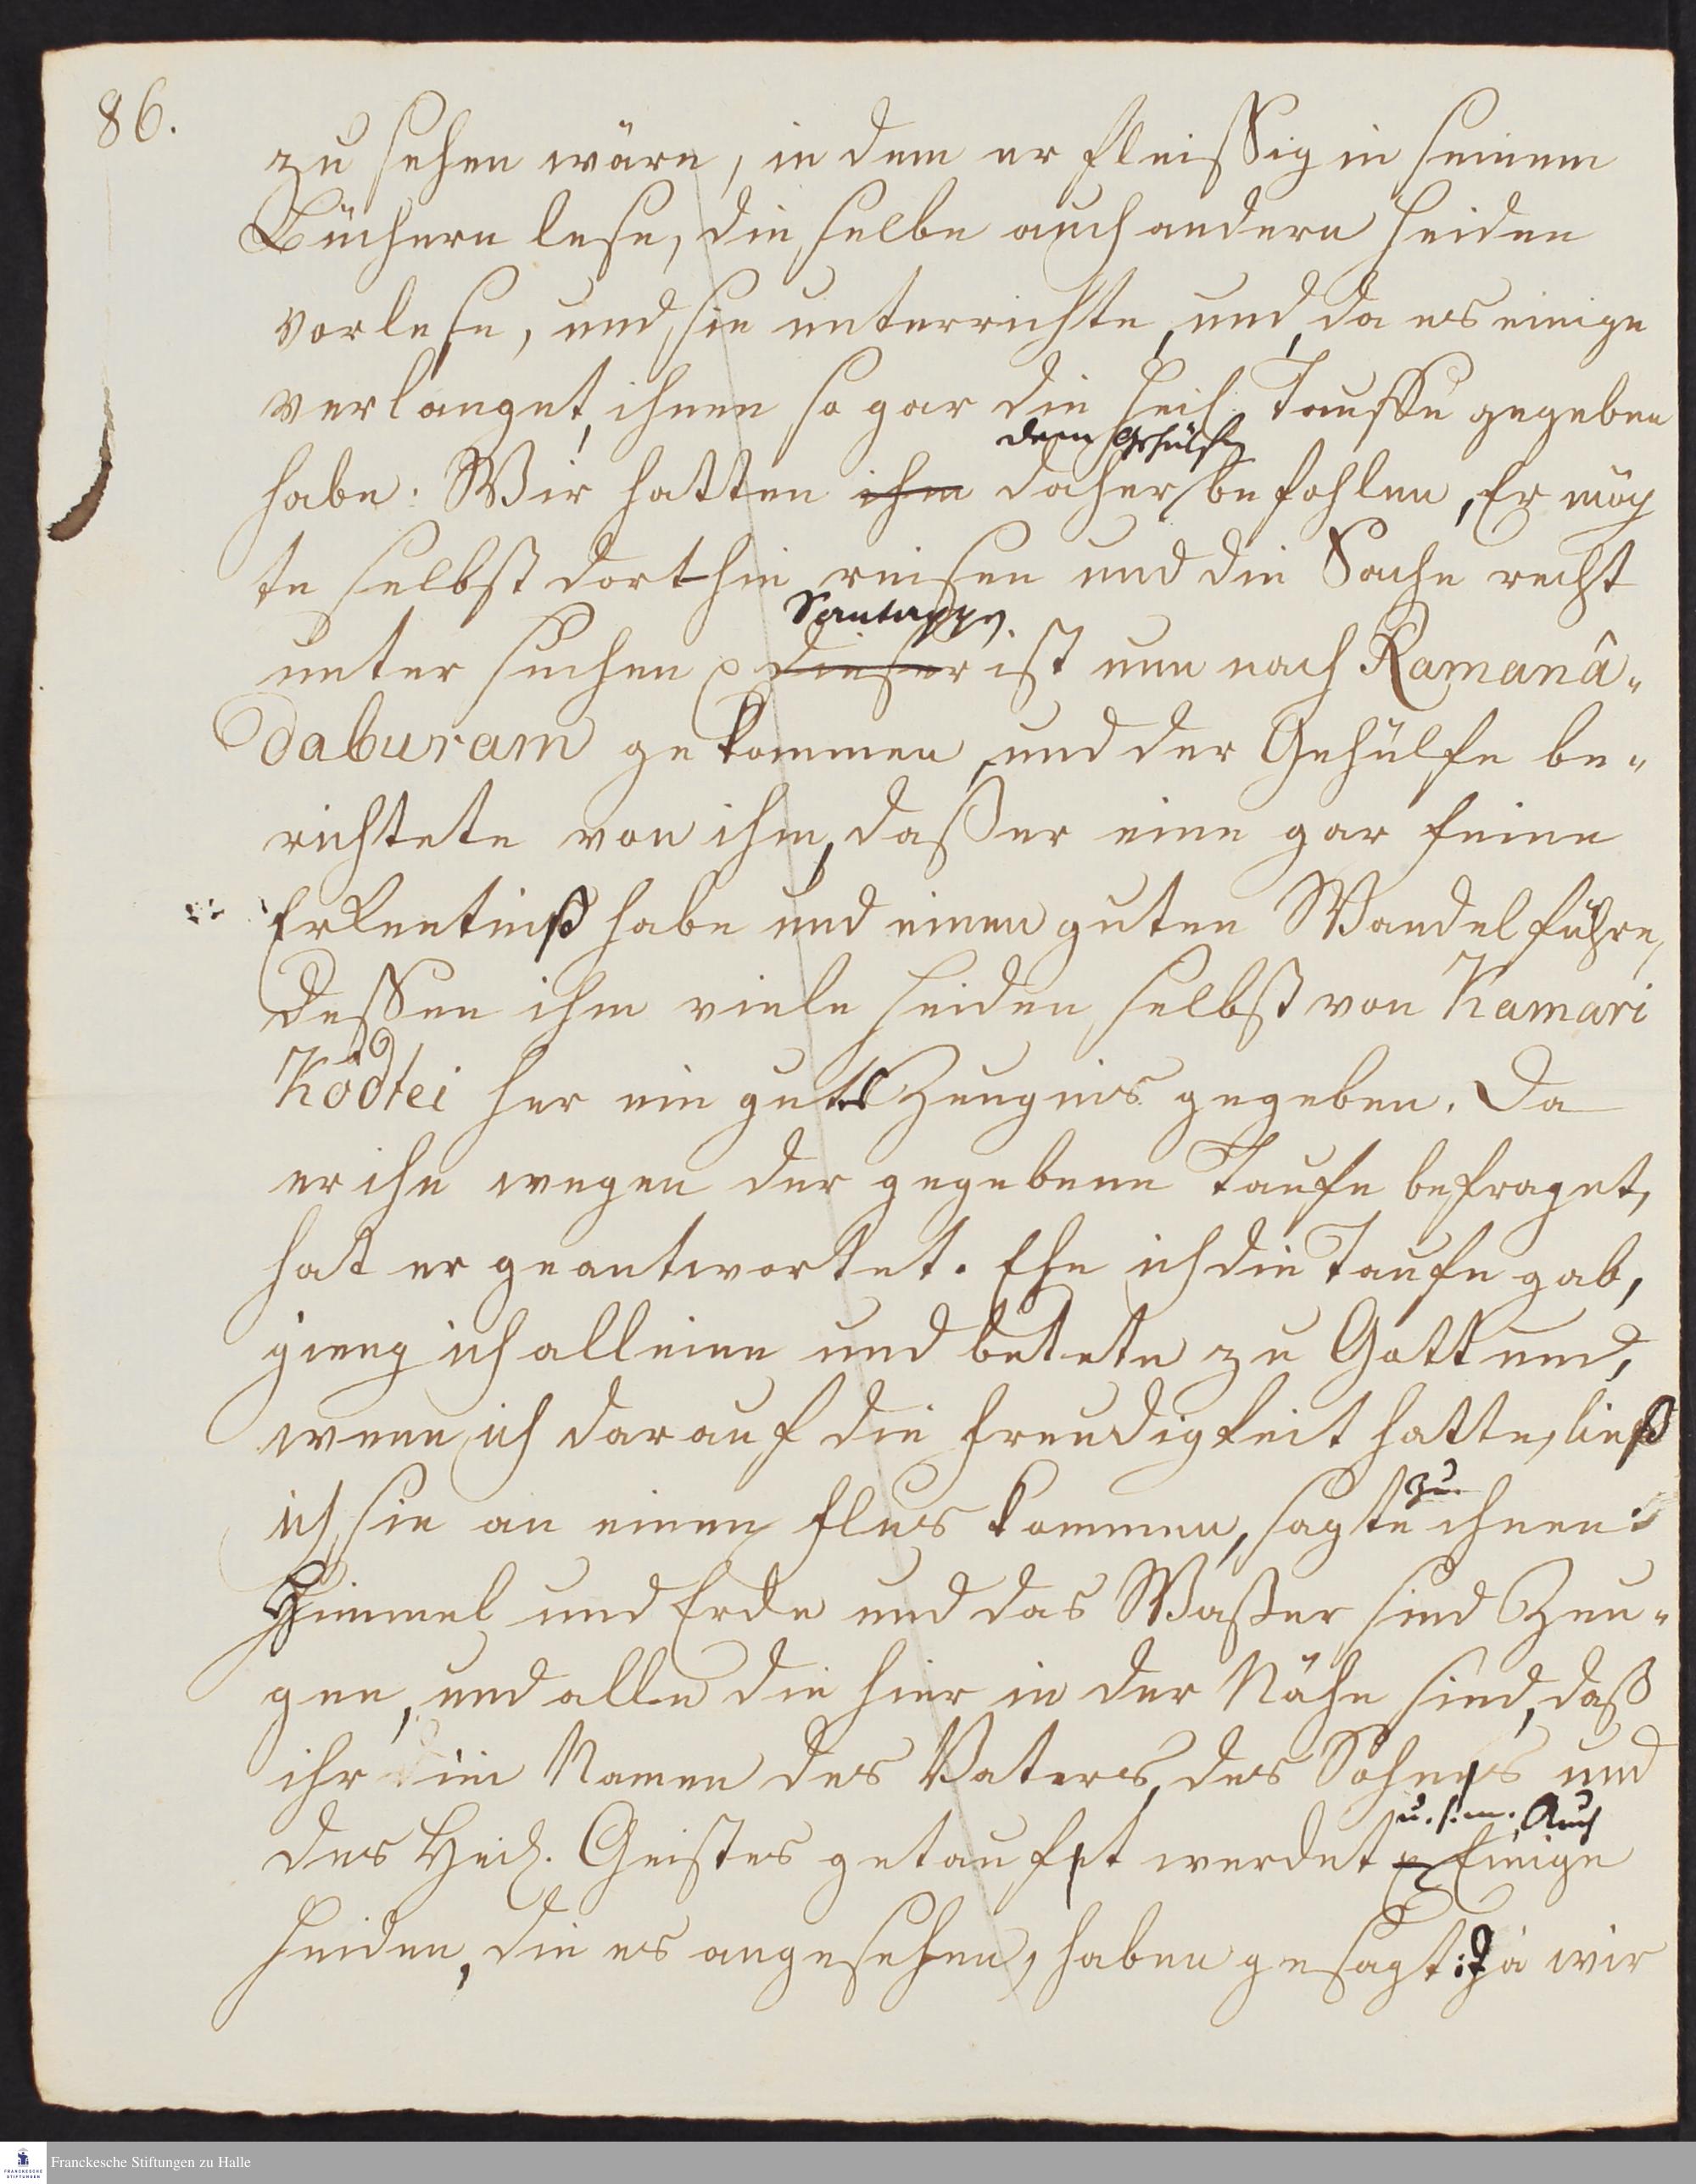 86.
zu sehen wäre, in dem er fleissig in seinem
Büchern lese, die selbe auch andern Heiden
vorlese, und sie unterrichte, und, da es einige
verlanget, ihnen so gar die Heil. Tauffe gegeben
dem Gehülfen
habe: Wir hatten ihm daher befohlen, Er möch
te selbst dorthin reisen und die Sache recht
Santappen.
unter suchen dieser ist nun nach Ramanâ-
daburam gekommen, und der Gehülfe be-
richtete von ihm, daß er eine gar feine
Erkentniß habe und einen guten Wandel führe,
dessen ihm viele Heiden selbst von Kamari
Kôdtei her ein gutes Zeugnis gegeben. Da
er ihn wegen der gegebene Taufe befraget,
hat er geantwortet. Ehe ich die Taufe gab,
gieng ich alleine und betete zu Gott und,
wenn ich darauf die Freudigkeit hatte, ließ
zu
ich sie an einen Flus kommen, sagte ihnen:
Himmel und Erde und das Waßer sind Zeu-
gen, und alle die hier in der Nähe sind, daß
ihr im Namen des Vaters, des Sohnes und
u. s. w. Auch
des Heil. Geistes getaufet werdet Einige
Heiden, die es angesehen, haben gesagt: Ja wir
Franckesche Stiftungen zu Halle